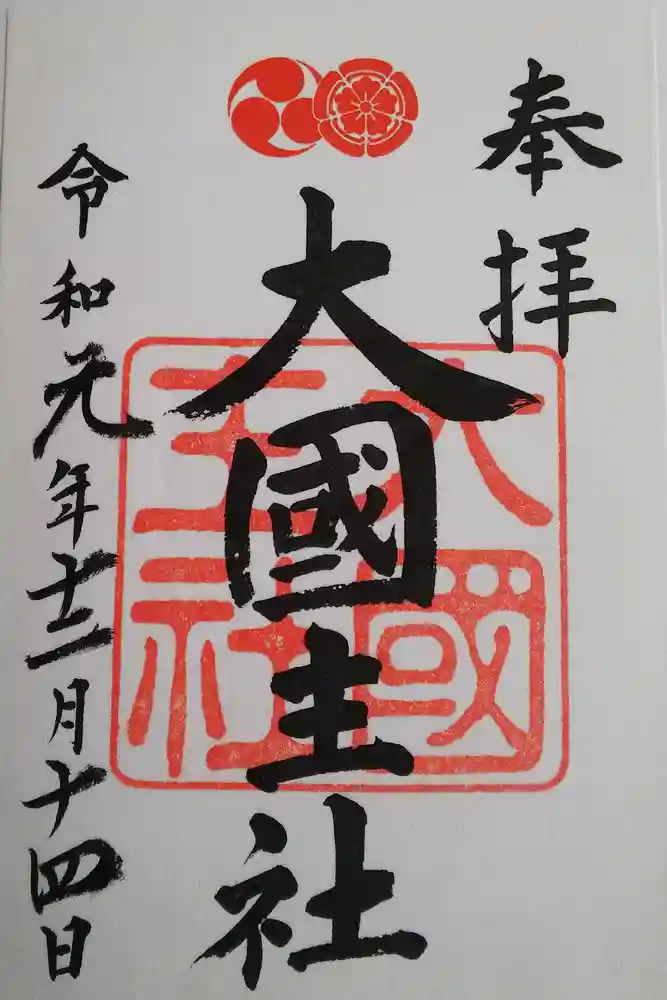 奉拝
大國主社
大國主社
令和元年十二月十四日